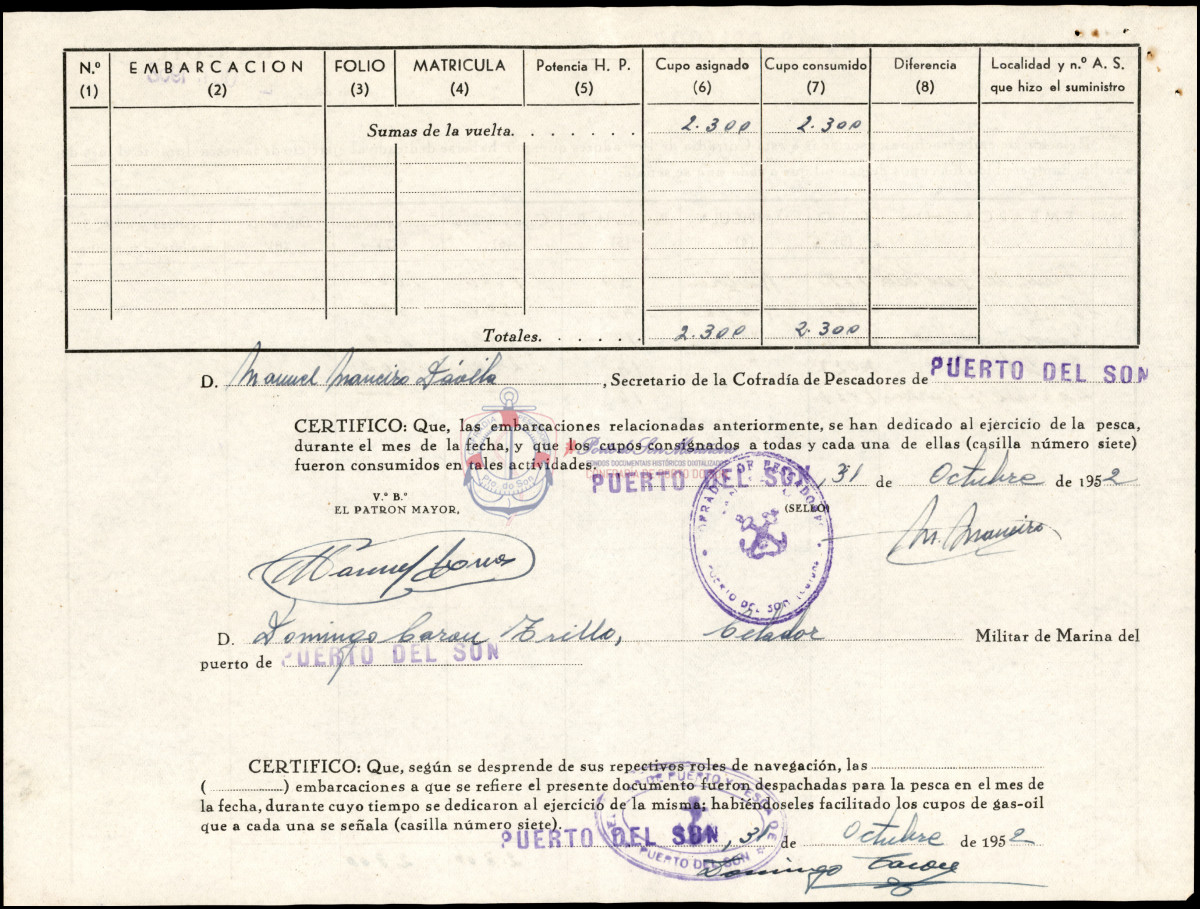 N.º EMBARCACION FOLIO MATRICULA Potencia H. P. Cupo asignado Cupo consumido Diferencia Localidad y n.º A. S.
(1) (2) (3) (4) (5) (6) (7) (8) que hizo el suministro
Sumas de la vuelta. . . . . . . 2.300 2.300
Totales. . . . . . 2.300 2.300
D. Manuel Maneiro Dávila, Secretario de la Cofradía de Pescadores de PUERTO DEL SON
CERTIFICO: Que, las embarcaciones relacionadas anteriormente, se han dedicado al ejercicio de la pesca,
durante el mes de la fecha, y que los cupos consignados a todas y cada una de ellas (casilla número siete)
fueron consumidos en tales actividades.
PUERTO DEL SON, 31 de Octubre de 1952
V.º B.º
EL PATRON MAYOR,
(SELLO)
COFRADIA DE PESCADORES
PUERTO DEL SON
Pto. do Son
M. Maneiro
D. Domingo Carou Trillo, Celador Militar de Marina del
puerto de PUERTO DEL SON
CERTIFICO: Que, según se desprende de sus repectivos roles de navegación, las
( ) embarcaciones a que se refiere el presente documento fueron despachadas para la pesca en el mes de
la fecha, durante cuyo tiempo se dedicaron al ejercicio de la misma; habiéndoseles facilitado los cupos de gas-oil
que a cada una se señala (casilla número siete).
PUERTO DEL SON, 31 de Octubre de 1952
DE PUERTO Y PESCA DE
PUERTO DEL SON
Domingo Carou